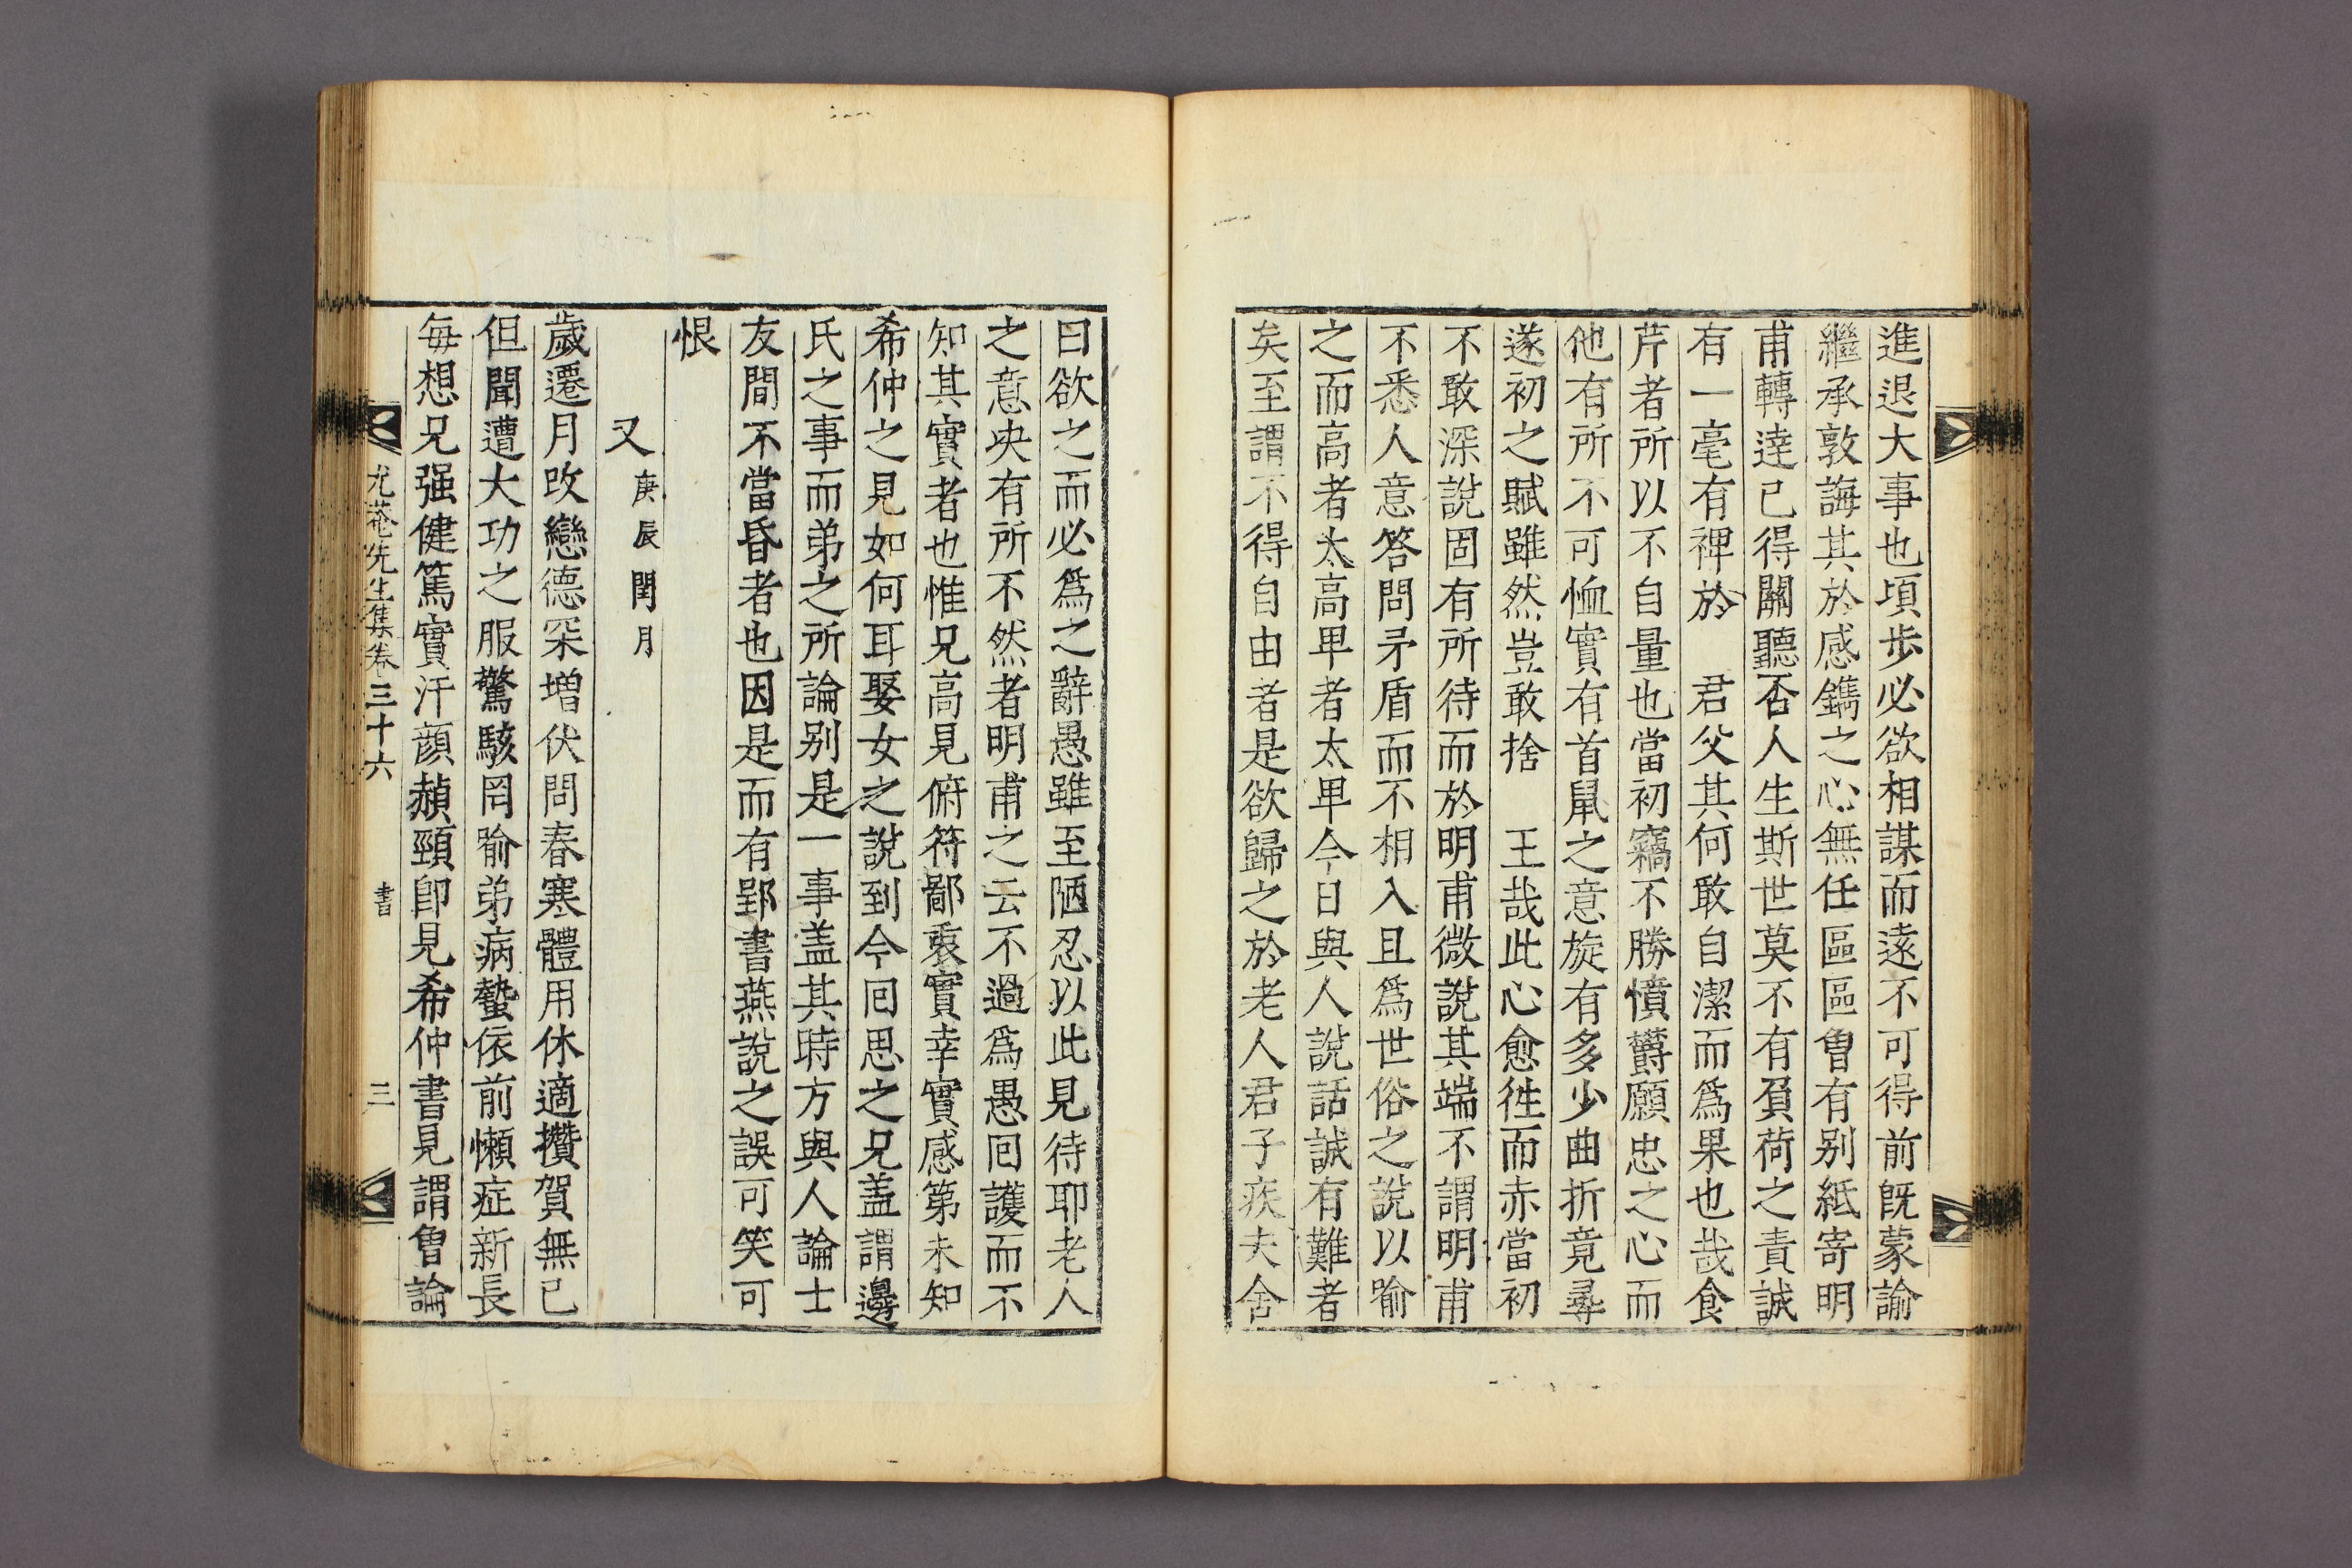 進退大事也頃步必欲相謀而遠不可得前旣蒙諭
繼承敦誨其於感鐫之心無任區區曾有別紙寄明
甫轉達已得關聽否人生斯世莫不有負荷之責誠
有一毫有裨於　君父其何敢自潔而爲果也哉食
芹者所以不自量也當初竊不勝憤欝願忠之心而
他有所不可恤實有首鼠之意旋有多少曲折竟尋
遂初之賦雖然豈敢捨　王哉此心愈徃而赤當初
不敢深說固有所待而於明甫微說其端不謂明甫
不悉人意答問矛盾而不相入且爲世俗之說以喻
之而高者太高卑者太卑今日與人說話誠有難者
矣至謂不得自由者是欲歸之於老人君子疾夫舍
曰欲之而必爲之辭愚雖至陋忍以此見待耶老人
之意决有所不然者明甫之云不過爲愚回護而不
知其實者也惟兄高見俯符鄙衷實幸實感第未知
希仲之見如何耳娶女之說到今回思之兄盖謂邊
氏之事而弟之所論別是一事盖其時方與人論士
友間不當昏者也因是而有郢書燕說之誤可笑可
恨
又 庚辰閏月
歲遷月改戀德罙增伏問春寒體用休適攢賀無已
但聞遭大功之服驚駭罔喻弟病蟄依前懶症新長
每想兄强健篤實汗顔赬頸卽見希仲書見謂曾論
尤菴先生集卷三十六　書　三